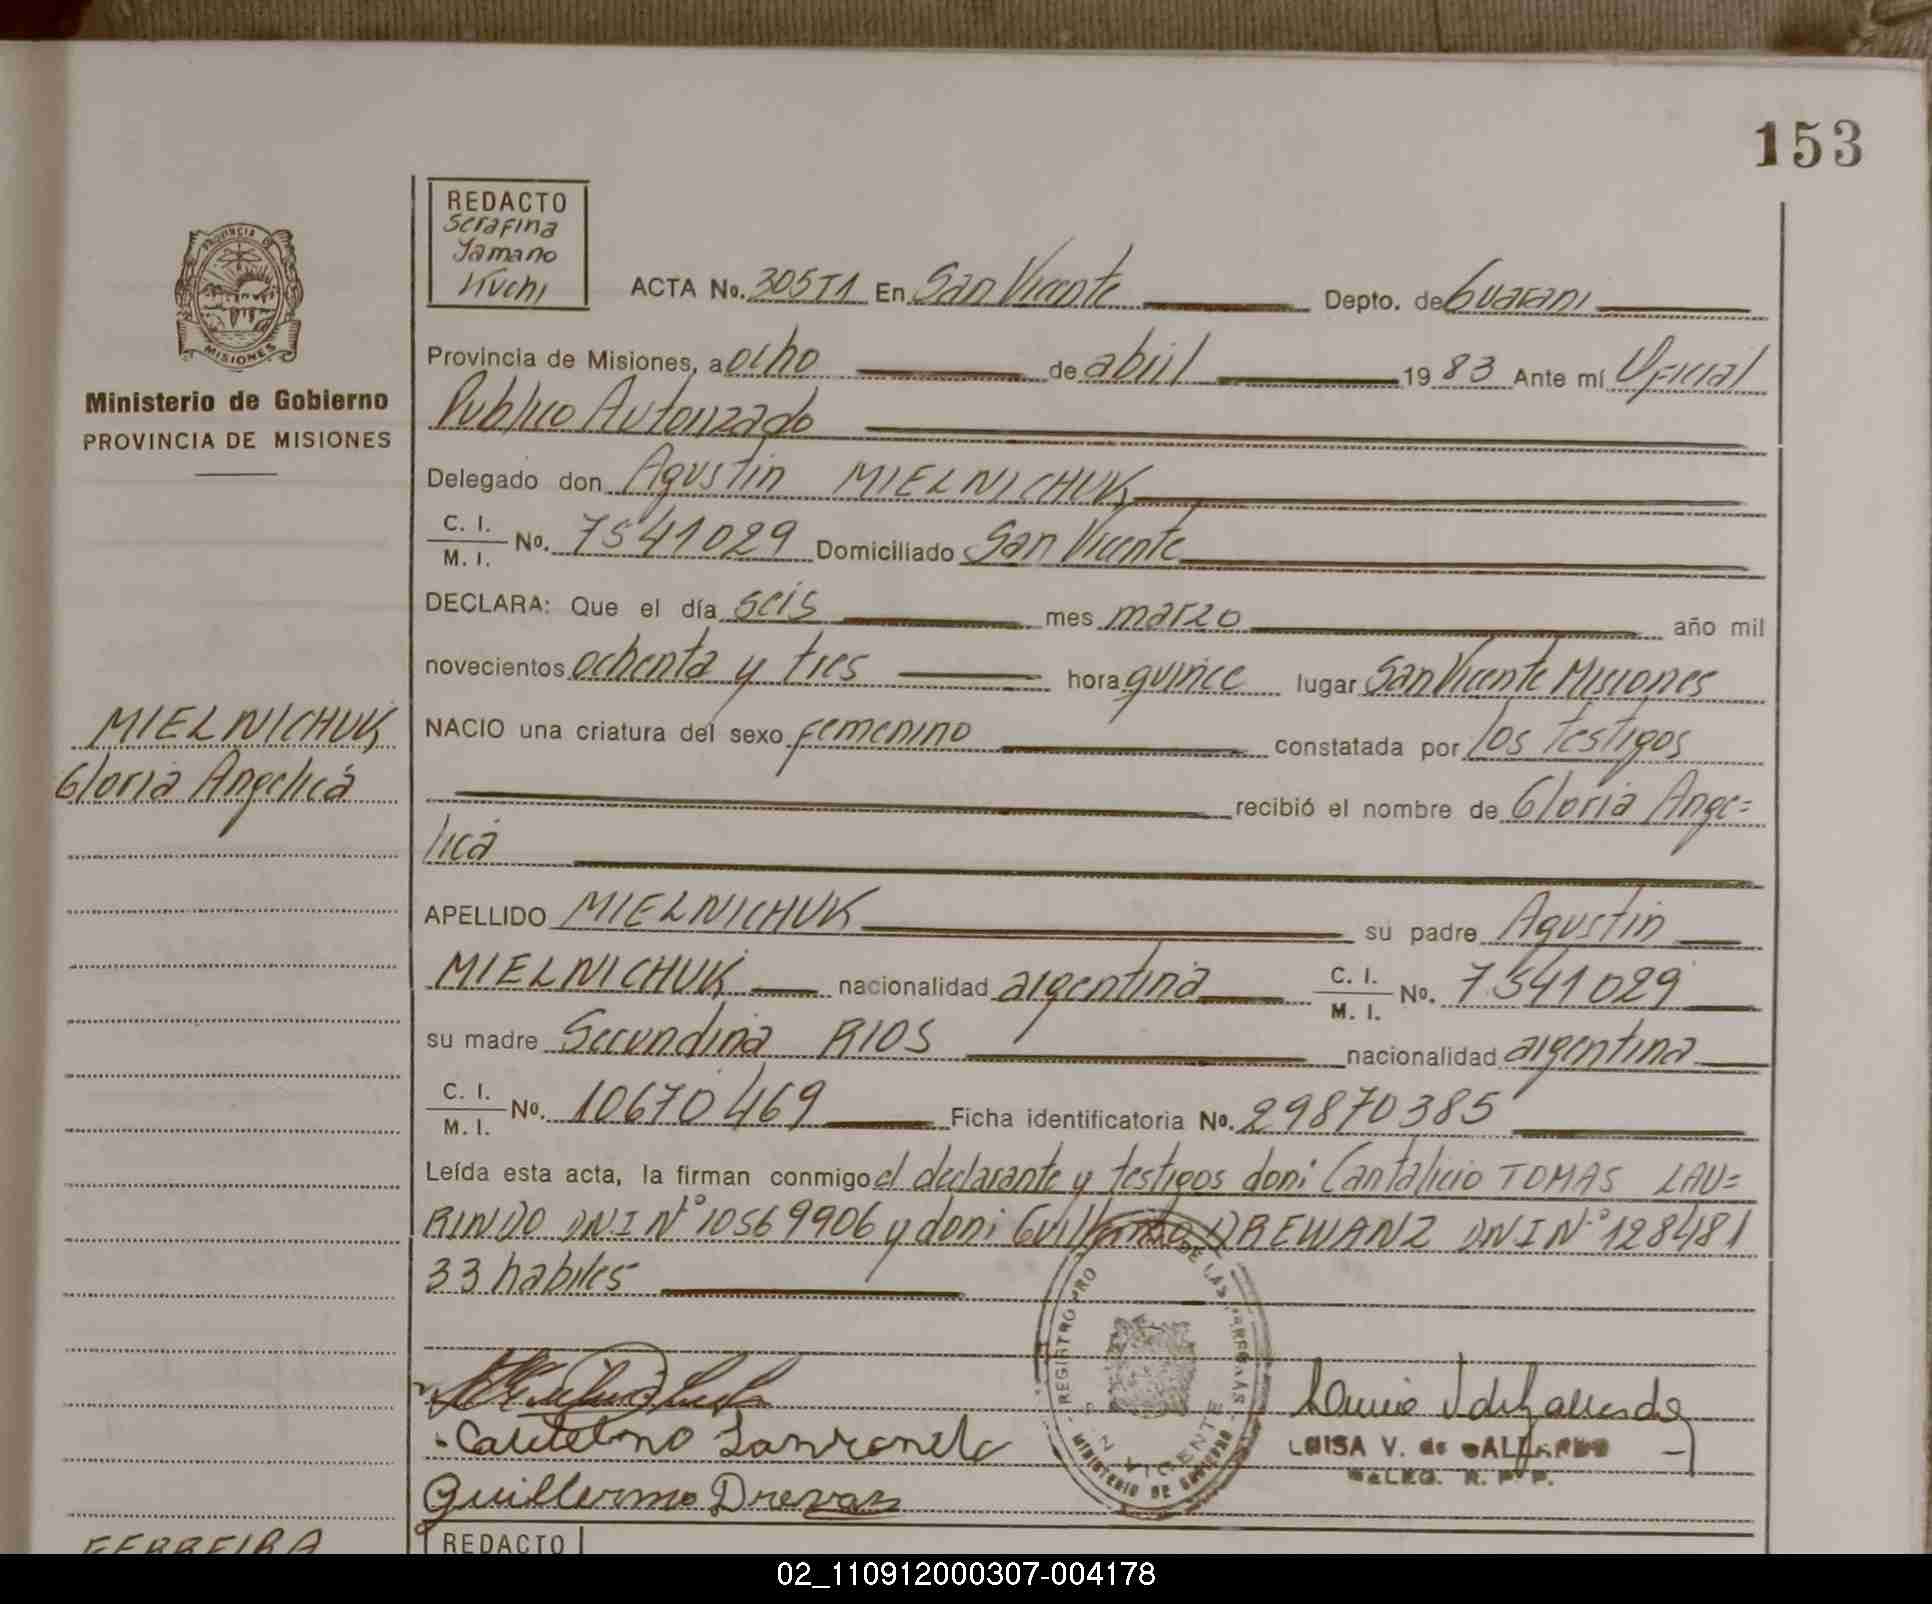 153
REDACTO
Serafina
Yamano
Kuchi
PROVINCIA DE
MISIONES
Ministerio de Gobierno
PROVINCIA DE MISIONES
ACTA No. 305T1 En San Vicente Depto. de Guarani
Provincia de Misiones, a ocho de abril 1983 Ante mí Oficial
Publico Autorizado
Delegado don Agustin MIELNICHUK
C. I. / M. I. No. 7541029 Domiciliado San Vicente
DECLARA: Que el día seis mes marzo año mil
novecientos ochenta y tres hora quince lugar San Vicente Misiones
MIELNICHUK
Gloria Angelica
NACIO una criatura del sexo femenino constatada por los testigos
recibió el nombre de Gloria Ange=
lica
APELLIDO MIELNICHUK su padre Agustin
MIELNICHUK nacionalidad argentina C. I. / M. I. No. 7541029
su madre Secundina RIOS nacionalidad argentina
C. I. / M. I. No. 10670469 Ficha identificatoria No. 29870385
Leída esta acta, la firman conmigo el declarante y testigos don: Cantalicio TOMAS LAU=
RINDO DNI Nº 10569906 y don: Guillermo DREWANZ DNI Nº 128481
33 habiles
REGISTRO PRO DE LAS PERSONAS
VICENTE
MINISTERIO DE GOBIERNO
LUISA V. de GALLARDO
DELEG. R. P. P.
Guillermo Drevanz
FERREIRA
REDACTO
02_110912000307-004178